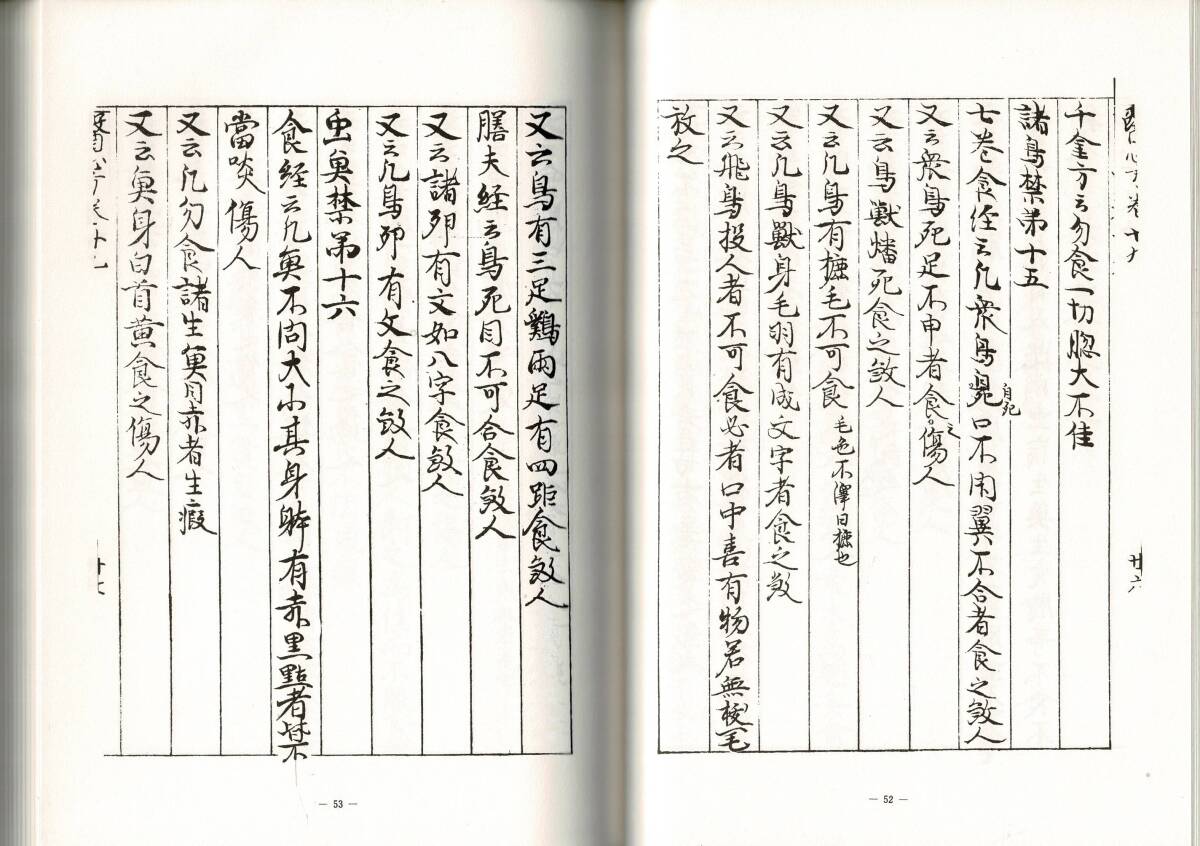 千金方云勿食一切腦大不佳
諸鳥禁第十五
七卷食経云凡衆鳥死自死口不閇翼不合者食之煞人
又云衆鳥死足不申者食之傷人
又云鳥獸燔死食之煞人
又云凡鳥有摭毛不可食毛色不澤曰摭也
又云凡鳥獸身毛羽有成文字者食之煞
又云飛鳥投人者不可食必者口中喜有物若無拔毛
放之
廿六
— 52 —
又云鳥有三足鷄兩足有四距食煞人
膳夫経云鳥死目不可合食煞人
又云諸卵有文如八字食煞人
又云凡鳥卵有文食之煞人
虫魚禁第十六
食経云凡魚不問大小其身躰有赤黒點者皆不
當啖傷人
又云凡勿食諸生魚目赤者生瘕
又云魚身白首黄食之傷人
— 53 —